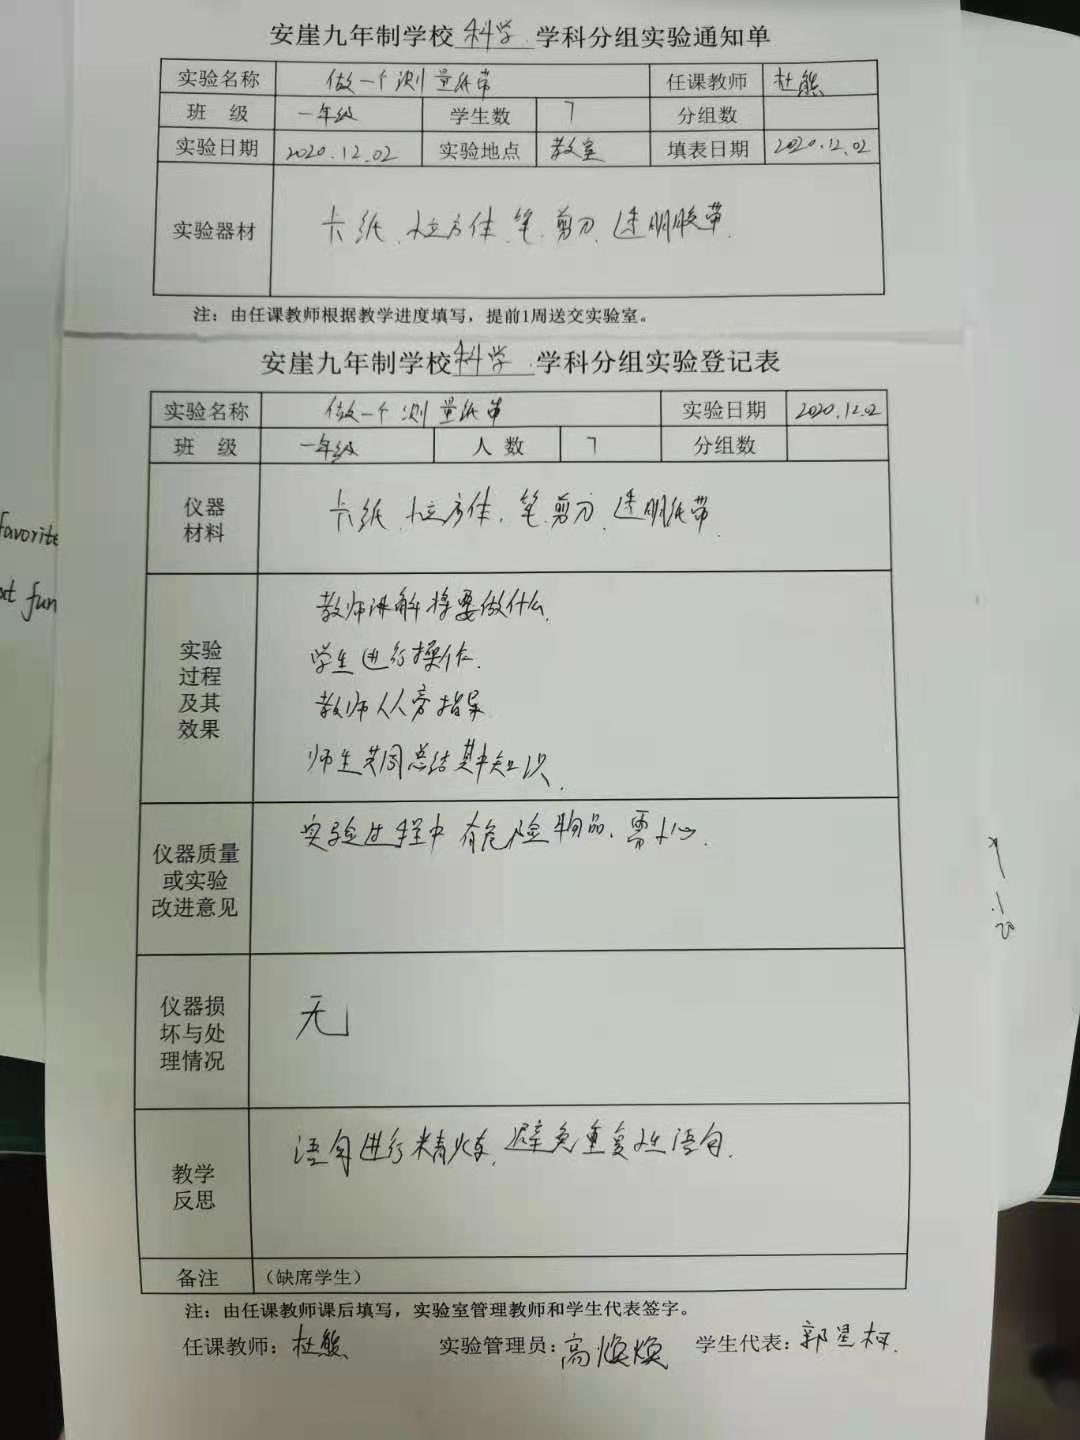 安崖九年制学校 科学 学科分组实验通知单
实验名称 做一个测量纸带 任课教师 杜熊
班 级 一年级 学生数 7 分组数
实验日期 2020.12.02 实验地点 教室 填表日期 2020.12.02
实验器材 卡纸、小立方体、笔、剪刀、透明胶带.
注：由任课教师根据教学进度填写，提前1周送交实验室。
安崖九年制学校 科学 学科分组实验登记表
实验名称 做一个测量纸带 实验日期 2020.12.02
班 级 一年级 人 数 7 分组数
仪器
材料
卡纸、小立方体、笔、剪刀、透明纸带
实验
过程
及其
效果
教师讲解将要做什么.
学生进行操作.
教师从旁指导.
师生共同总结其中知识.
仪器质量
或实验
改进意见
实验过程中有危险物品、需小心.
仪器损
坏与处
理情况
无
教学
反思
语句进行精炼，避免重复性语句.
备注 （缺席学生）
注：由任课教师课后填写，实验室管理教师和学生代表签字。
任课教师：杜熊 实验管理员：高焕焕 学生代表：郭星
favorite
xt fun